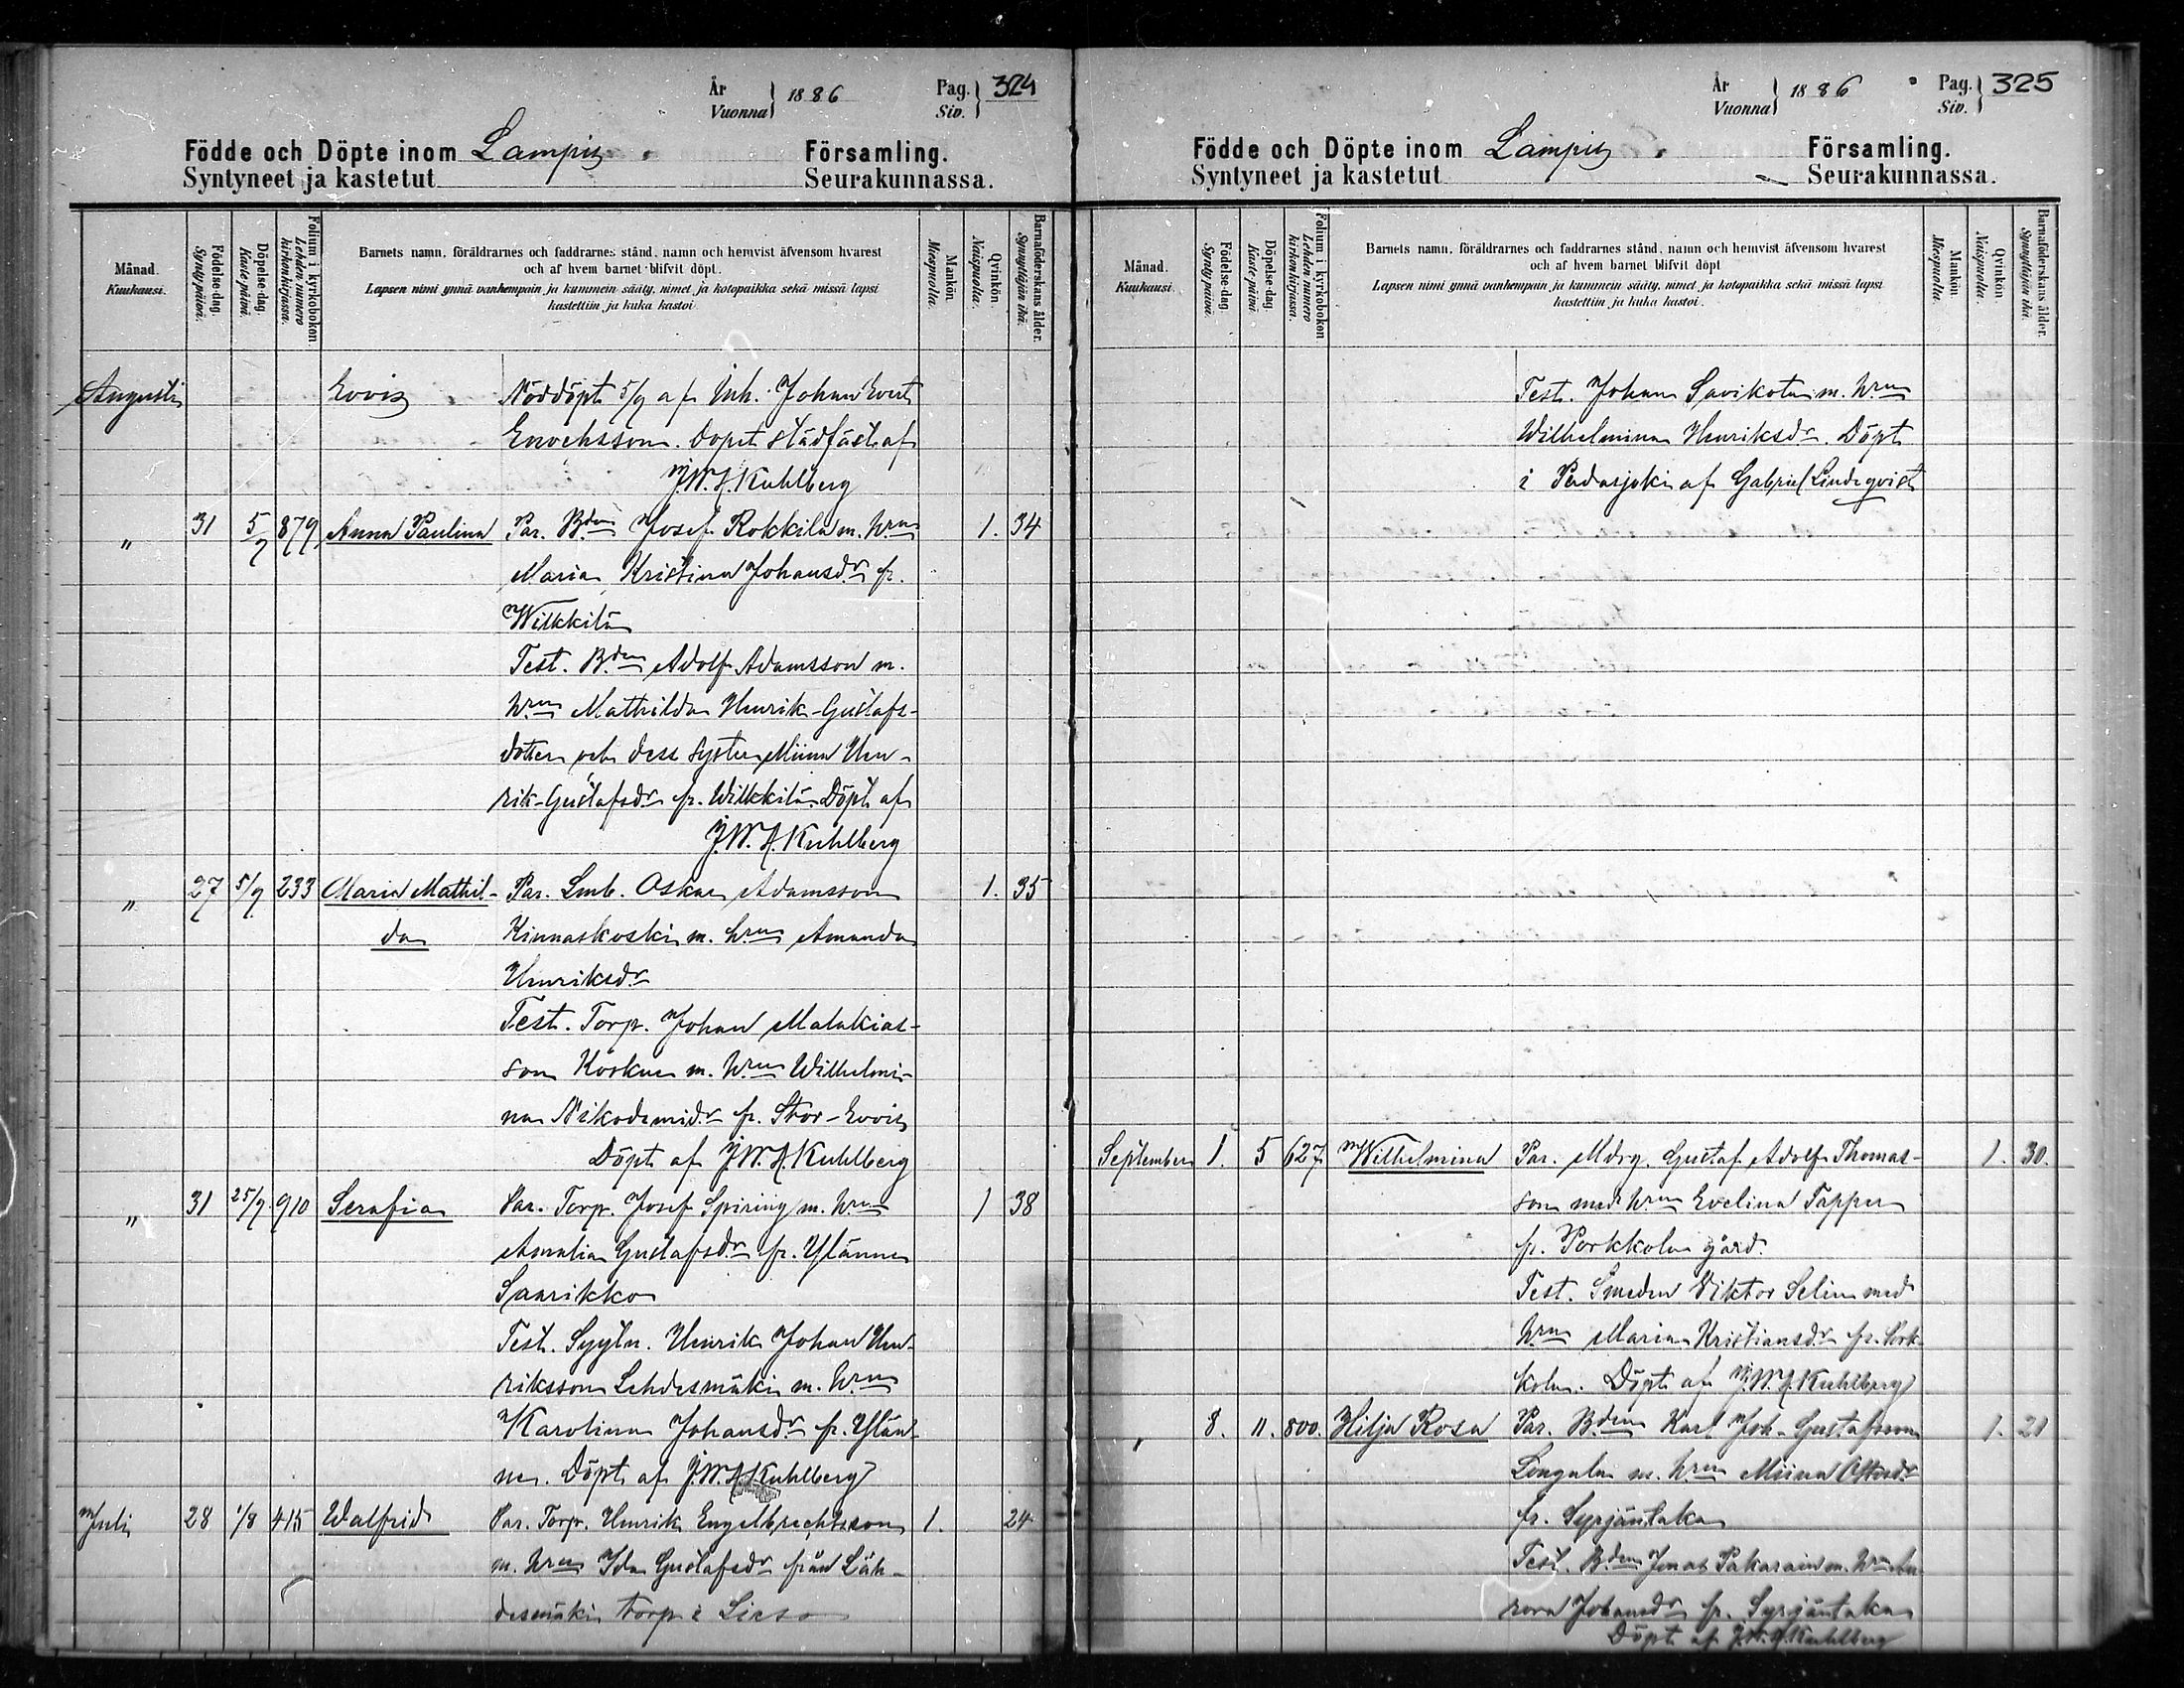 År
Vuonna } 1886
Pag.
Siv. } 324
Födde och Döpte inom Lampis Församling.
Syntyneet ja kastetut Seurakunnassa.
Månad.
Kuukausi.
Födelse-dag.
Synty päivä.
Döpelse-dag.
Kaste päivä.
Folium i kyrkoboken.
Lehden numero kirkonkirjassa.
Barnets namn, föräldrarnes och faddrarnes stånd, namn och hemvist äfvensom hvarest
och af hvem barnet blifvit döpt.
Lapsen nimi ynnä vanhempain ja kummein sääty, nimet ja kotopaikka sekä missä lapsi
kastettiin ja kuka kastoi.
Mankön.
Miespuolia.
Qvinkön.
Naispuolia.
Barnaföderskans ålder.
Synnyttäjän ikä.
Augusti Evois Nöddöpt 5/9 af Inh. Johan Evert
Enochsson. Dopet stadfäst af
J.W.A. Kuhlberg
" 31 5/9 879 Anna Paulina Par. Bden Josef Rokkila m. hrun 1. 34
Maria Kristina Johansdr fr.
Wilkkilä
Test. Bden Adolf Adamsson m.
hrun Mathilda Henrik-Gustafs-
dotter och dess syster Miina Hen-
rik-Gustafsdr fr. Wilkkilä Döpt af
J.W.A. Kuhlberg
" 27 5/9 233 Maria Mathil- Par. Smb. Oskar Adamsson 1. 35
da Kinnaskoski m. hrun Amanda
Henriksdr
Test. Torp. Johan Malakias-
son Koskue m. hrun Wilhelmi-
na Nikodemidr fr. Stor-Evois
Döpt af J.W.A. Kuhlberg
" 31 25/9 910 Serafia Par. Torp. Josef Spiring m. hrun 1 38
Amalia Gustafsdr fr. Ylänne
Saarikko
Test. Henrik Johan Hen-
riksson Lehdesmäki m. hrun
Karolina Johansdr fr. Ylän-
ne. Döpt af J.W.A. Kuhlberg
Juli 28 1/8 415 Walfrid Par. Torp. Henrik Engelbrechtsson 1. 24
m. hrun Ida Gustafsdr från Läh-
desmäki torp i Lieso
År
Vuonna } 1886
Pag.
Siv. } 325
Födde och Döpte inom Lampis Församling.
Syntyneet ja kastetut Seurakunnassa.
Månad.
Kuukausi.
Födelse-dag.
Synty päivä.
Döpelse-dag.
Kaste päivä.
Folium i kyrkoboken.
Lehden numero kirkonkirjassa.
Barnets namn, föräldrarnes och faddrarnes stånd, namn och hemvist äfvensom hvarest
och af hvem barnet blifvit döpt
Lapsen nimi ynnä vanhempain ja kummein sääty, nimet ja kotopaikka sekä missä lapsi
kastettiin ja kuka kastoi.
Mankön.
Miespuolia.
Qvinkön.
Naispuolia.
Barnaföderskans ålder.
Synnyttäjän ikä.
Test. Johan Savikota m. hrun
Wilhelmina Henriksdr. Döpt
i Padasjoki af Gabriel Lindqvist
September 1. 5 627 Wilhelmina Par. Mdrg. Gustaf Adolf Thomas- 1. 30.
son med hrun Evelina Tapper
fr. Porkkola gård.
Test. Smeden Viktor Selin med
hrun Maria Kristiansdr fr. Pork-
kola. Döpt af J.W.A. Kuhlberg
" 8. 11. 800. Hilja Rosa Par. Bden Karl Joh. Gustafsson 1. 21
m. hrun Miina
fr. Syrjäntaka
Test. Bden Jonas Pakarain m. hrun Au-
rora Johansdr fr. Syrjäntaka
Döpt af J.W.A. Kuhlberg